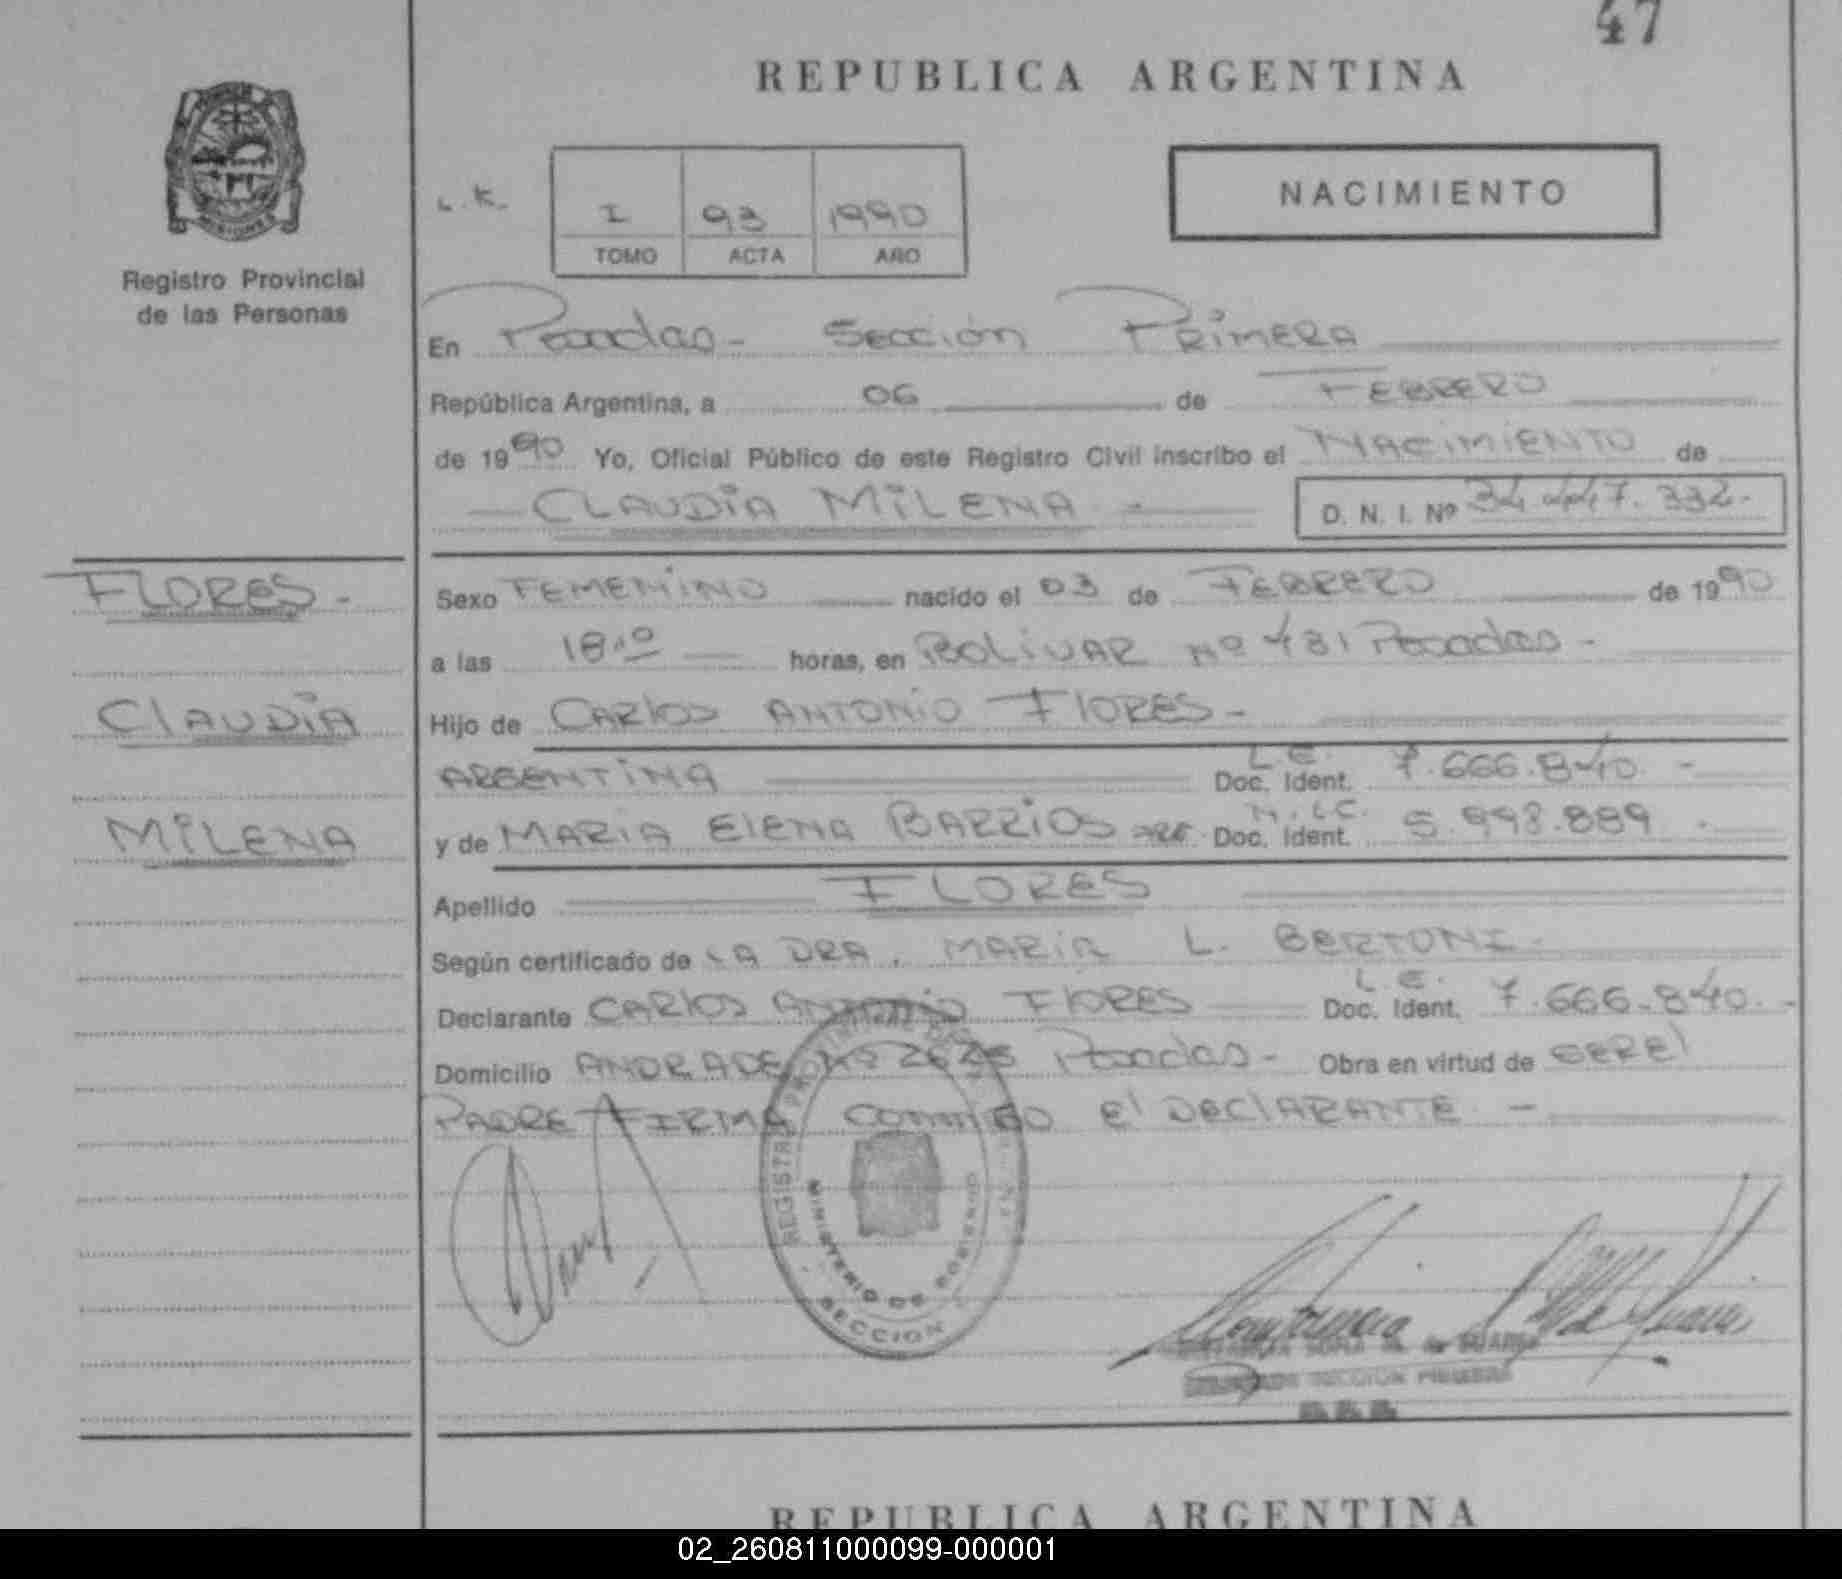 47
REPUBLICA ARGENTINA
Registro Provincial
de las Personas
L. K.
I 93 1990
TOMO ACTA AÑO
NACIMIENTO
En Posadas - Sección Primera
República Argentina, a 06 de FEBRERO
de 1990 Yo, Oficial Público de este Registro Civil inscribo el NACIMIENTO de
CLAUDIA MILENA - D. N. I. Nº 34.447.332.-
FLORES -
CLAUDIA
MILENA
Sexo FEMENINO nacido el 03 de FEBRERO de 1990
a las 18.º horas, en BOLIVAR Nº 481 Posadas -
Hijo de CARLOS ANTONIO FLORES -
ARGENTINA L.E. Doc. Ident. 7.666.840. -
y de MARIA ELENA BARRIOS ARG. Doc. Ident. 5.998.889 .
Apellido FLORES
Según certificado de LA DRA. MARIA L. BERTONI -
Declarante CARLOS ANTONIO FLORES L.E. Doc. Ident. 7.666.840. -
Domicilio ANDRADE Nº Posadas - Obra en virtud de SER El
PADRE FIRMA CONMIGO El DECLARANTE -
REGISTRO
MINISTERIO DE GOBIERNO
SECCION
SECCION PRIMERA
REPUBLICA ARGENTINA
02_260811000099-000001